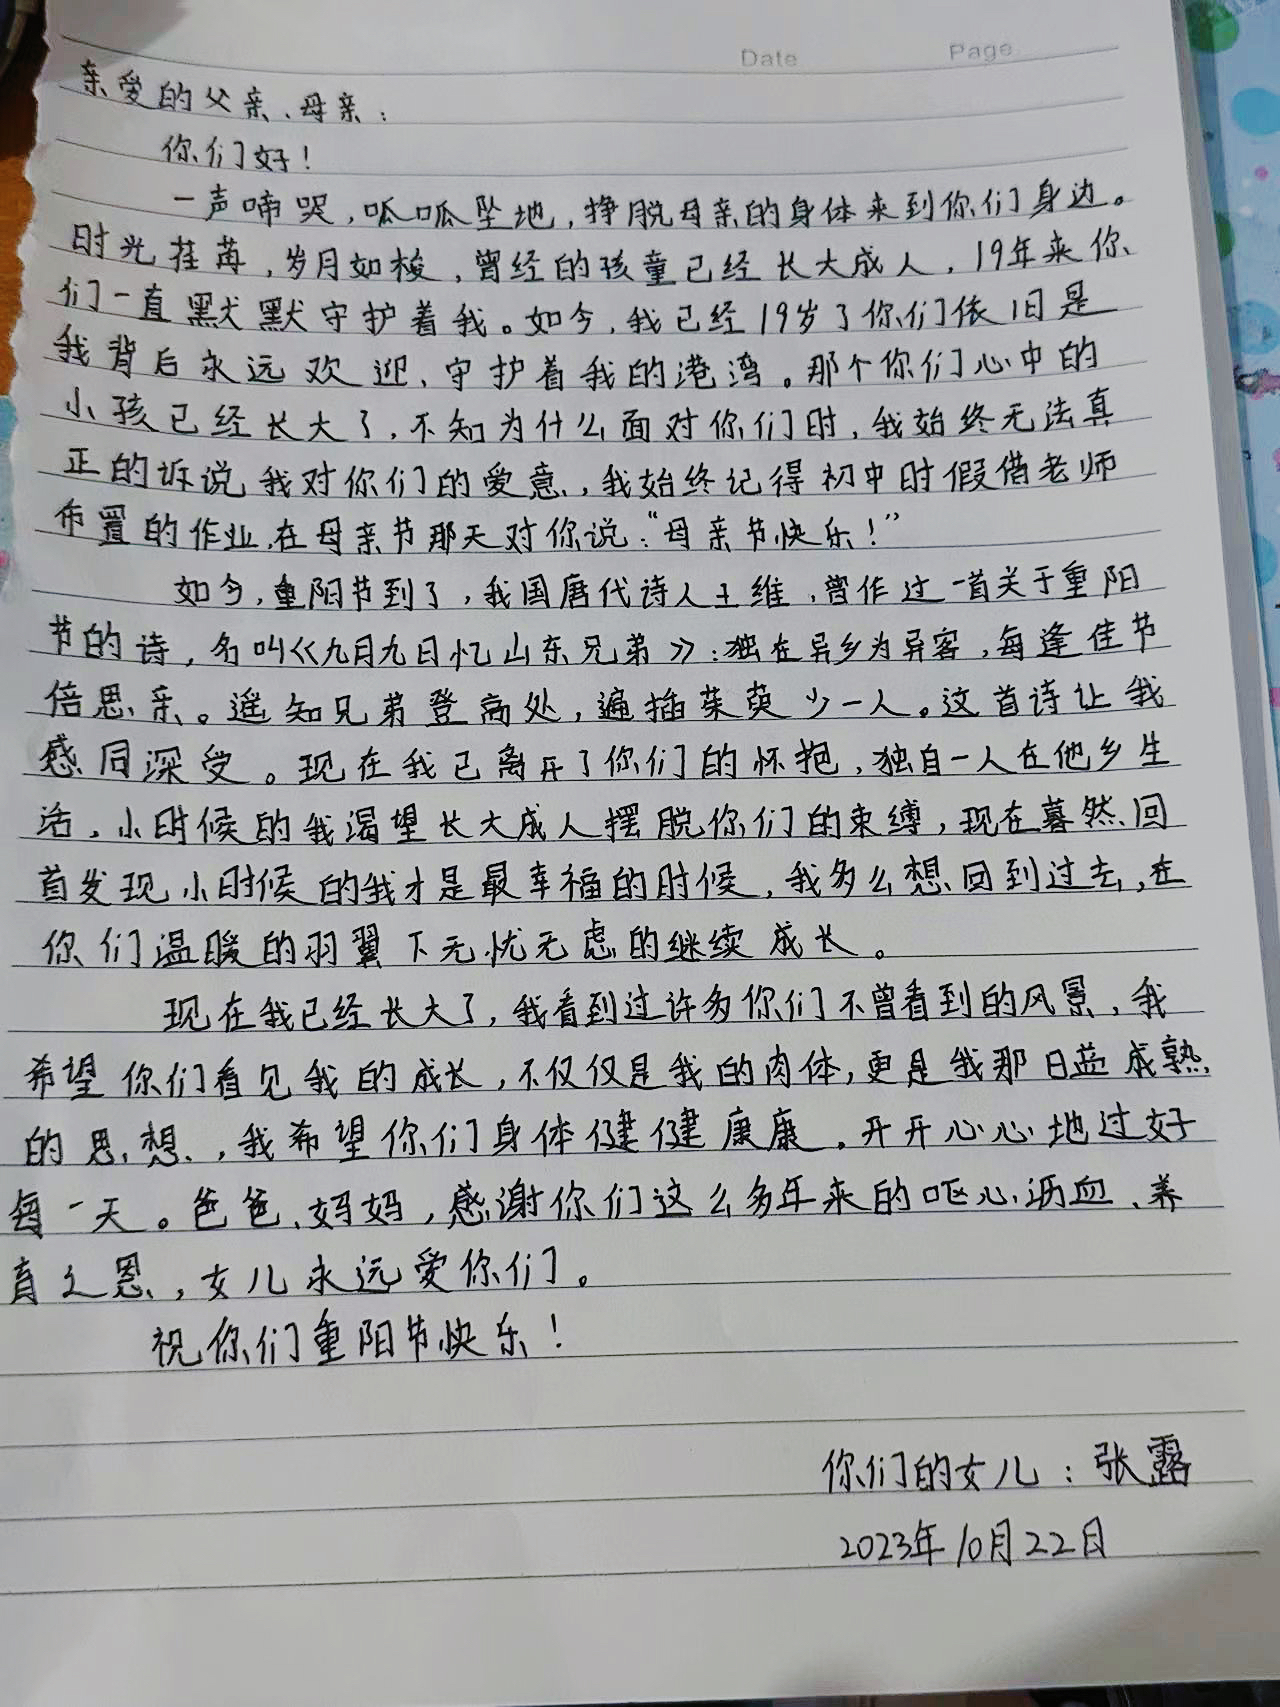 Date Page
亲爱的父亲、母亲：
你们好！
一声啼哭，呱呱坠地，挣脱母亲的身体来到你们身边。
时光荏苒，岁月如梭，曾经的孩童已经长大成人，19年来你
们一直默默守护着我。如今，我已经19岁了你们依旧是
我背后永远欢迎、守护着我的港湾。那个你们心中的
小孩已经长大了，不知为什么面对你们时，我始终无法真
正的诉说我对你们的爱意，我始终记得初中时假借老师
布置的作业，在母亲节那天对你说：“母亲节快乐！”
如今，重阳节到了，我国唐代诗人王维，曾作过一首关于重阳
节的诗，名叫《九月九日忆山东兄弟》：独在异乡为异客，每逢佳节
倍思亲。遥知兄弟登高处，遍插茱萸少一人。这首诗让我
感同深受。现在我已离开了你们的怀抱，独自一人在他乡生
活，小时候的我渴望长大成人摆脱你们的束缚，现在暮然回
首发现小时候的我才是最幸福的时候，我多么想回到过去，在
你们温暖的羽翼下无忧无虑的继续成长。
现在我已经长大了，我看到过许多你们不曾看到的风景，我
希望你们看见我的成长，不仅仅是我的肉体，更是我那日益成熟
的思想，我希望你们身体健健康康，开开心心地过好
每一天。爸爸、妈妈，感谢你们这么多年来的呕心沥血、养
育之恩，女儿永远爱你们。
祝你们重阳节快乐！
你们的女儿：张露
2023年10月22日